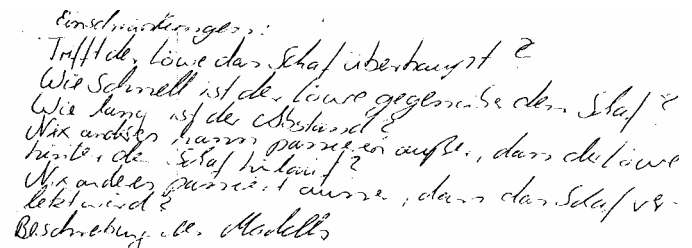 Einschränkungen:
Trifft der Löwe das Schaf überhaupt?
Wie schnell ist der Löwe gegenüber dem Schaf?
Wie lang ist der Abstand?
Nix anderes kann passieren außer, dass der Löwe
hinter dem Schaf
Nix anderes passiert ausser, dass das Schaf ver-
letzt wird?
Beschreibung des Modells